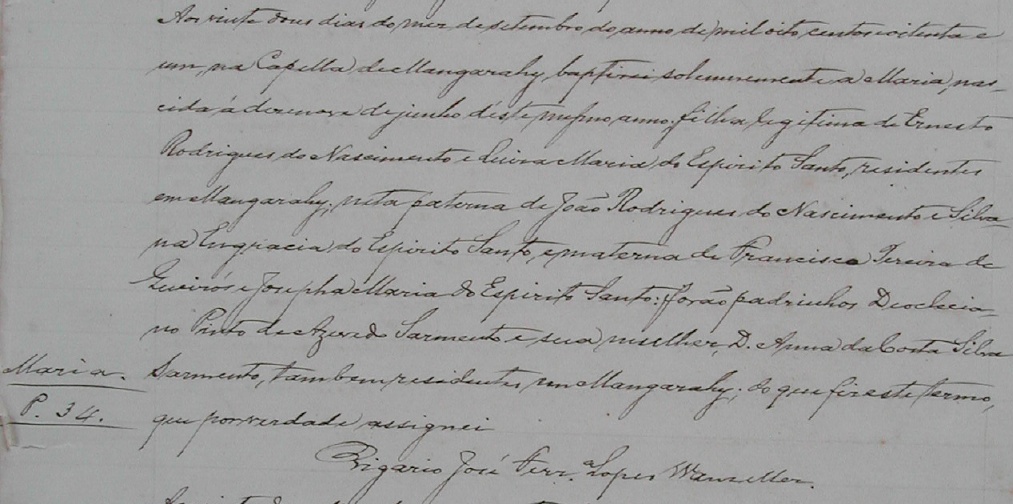 Aos vinte dous dias do mez de setembro do anno de mil oito centos e oitenta e
um, na Capella de Mangarahy, baptisei solemnemente a Maria, nas-
cida á dezenove de junho d'este mesmo anno, filha legitima de Ernesto
Rodrigues do Nascimento e Luiza Maria do Espirito Santo, residentes
em Mangarahy; neta paterna de João Rodrigues do Nascimento e Silva-
na Engracia do Espirito Santo, e materna de Francisco Pereira de
Queirós e Josepha Maria do Espirito Santo: forão padrinhos Deoclecia-
no Pinto de Azeredo Sarmento e sua mulher, D. Anna da Costa Silva
Maria.
Sarmento, tambem residentes em Mangarahy; do que fiz este termo,
P. 34.
que por verdade assignei
Vigario José Ferr.ª Lopes Wanzeller.